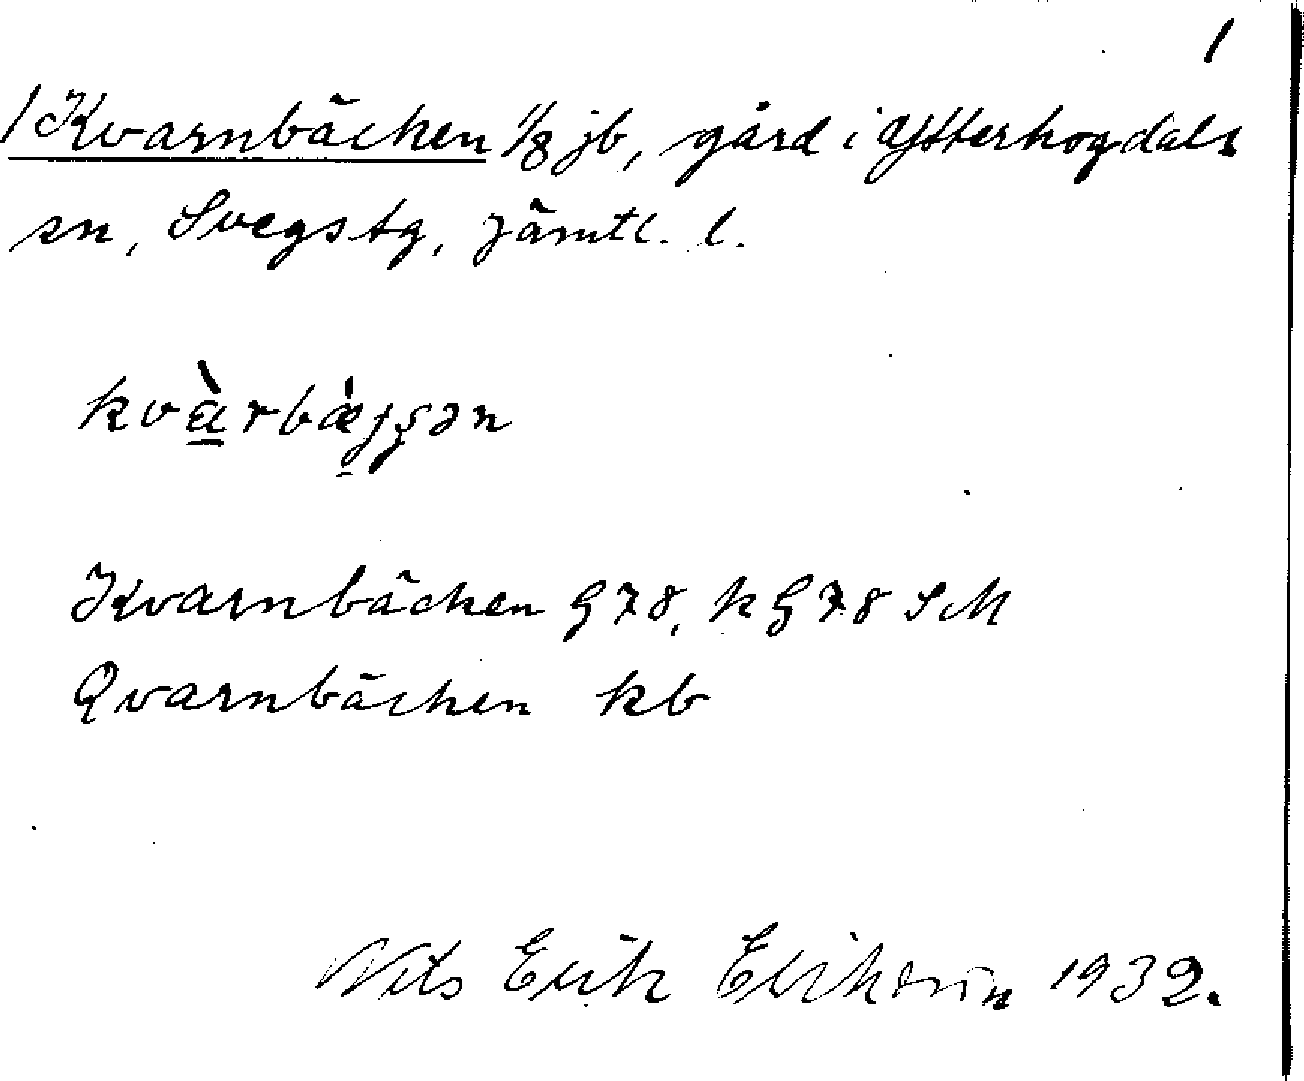 1
/ Kvarnbäcken 1/8 jb, gård i Ytterhogdals
sn, Svegs tg, Jämtl. l.
kvàrbæjʂən
Kvarnbäcken G78, k G78 SM
Qvarnbäcken kb
Nils Erik Erikson 1932.